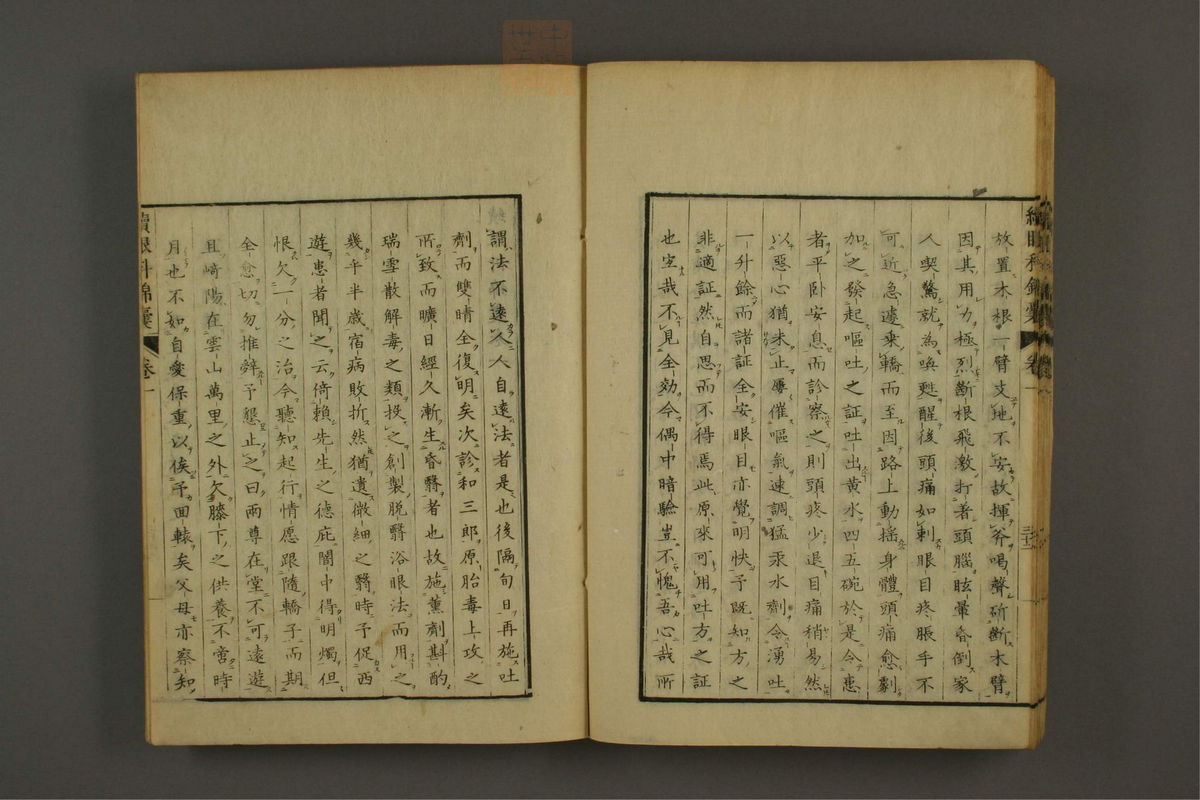 放置木根一臂支地不安故揮斧喝聲斫斷木臂
因其用力極烈斷根飛激打著頭腦眩暈昏倒家
人喫驚就為喚甦醒後頭痛如刺眼目疼脹手不
可近急遽乘轎而至因路上動搖身體頭痛愈劇
加之發起嘔吐之証吐出黃水四五碗於是令患
者平臥安息而診察之則頭疼少退目痛稍易然
以惡心猶未止屢催嘔氣速調猛汞水劑令湧吐
一升餘而諸証全安眼目亦覺明快予既知方之
非適証然自思而不得焉此原來可用吐方之証
也宜哉不見全効今偶中暗驗豈不愧吾心哉所
謂法不遠人人自遠法者是也後隔旬日再施吐
劑而雙睛全復明矣次診和三郎原胎毒上攻之
所致而曠日經久漸生昏翳者也故施薰劑斟酌
瑞雪散解毒之類投之創製脫翳浴眼法而用之
幾乎半歲宿病敗折然猶遺微細之翳時予促西
遊患者聞之云倚賴先生之德庇闇中得明燭但
恨欠一分之治今聽知起行情愿跟隨轎子而期
全愈切勿推辭予懇止之曰兩尊在堂不可遠遊
且崎陽在雲山萬里之外欠膝下之供養不啻時
月也不如自愛保重以俟予回轅矣父母亦察知
續眼科錦囊 卷一